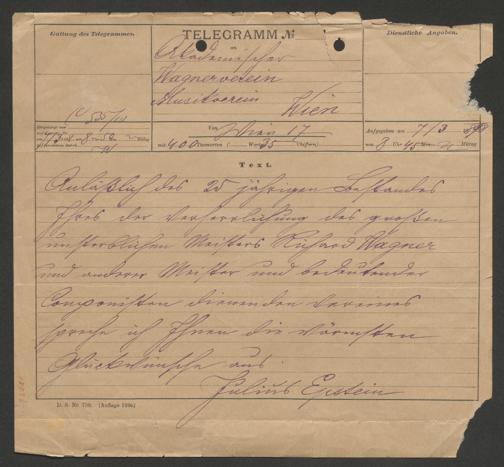 Gattung des Telegrammes.
TELEGRAMM №
Dienstliche Angaben.
an
Akademischer
Wagnerverein
Musikverein
Wien
Von Wien 17
Aufgegeben am 7/3 1898
mit 400 Taxworten ( Worte 35 Chiffren)
um 8 Uhr 45 Min. Mittag
Text.
Anläßlich des 25 jährigen Bestandes
Ihres der Verherrlichung des großen
unsterblichen Meisters Richard Wagner
und anderer Meister und bedeutender
Componisten dienenden Vereines
spreche ich Ihnen die wärmsten
Glückwünsche aus.
Julius Epstein
D. S. Nr. 700. (Auflage 1896)